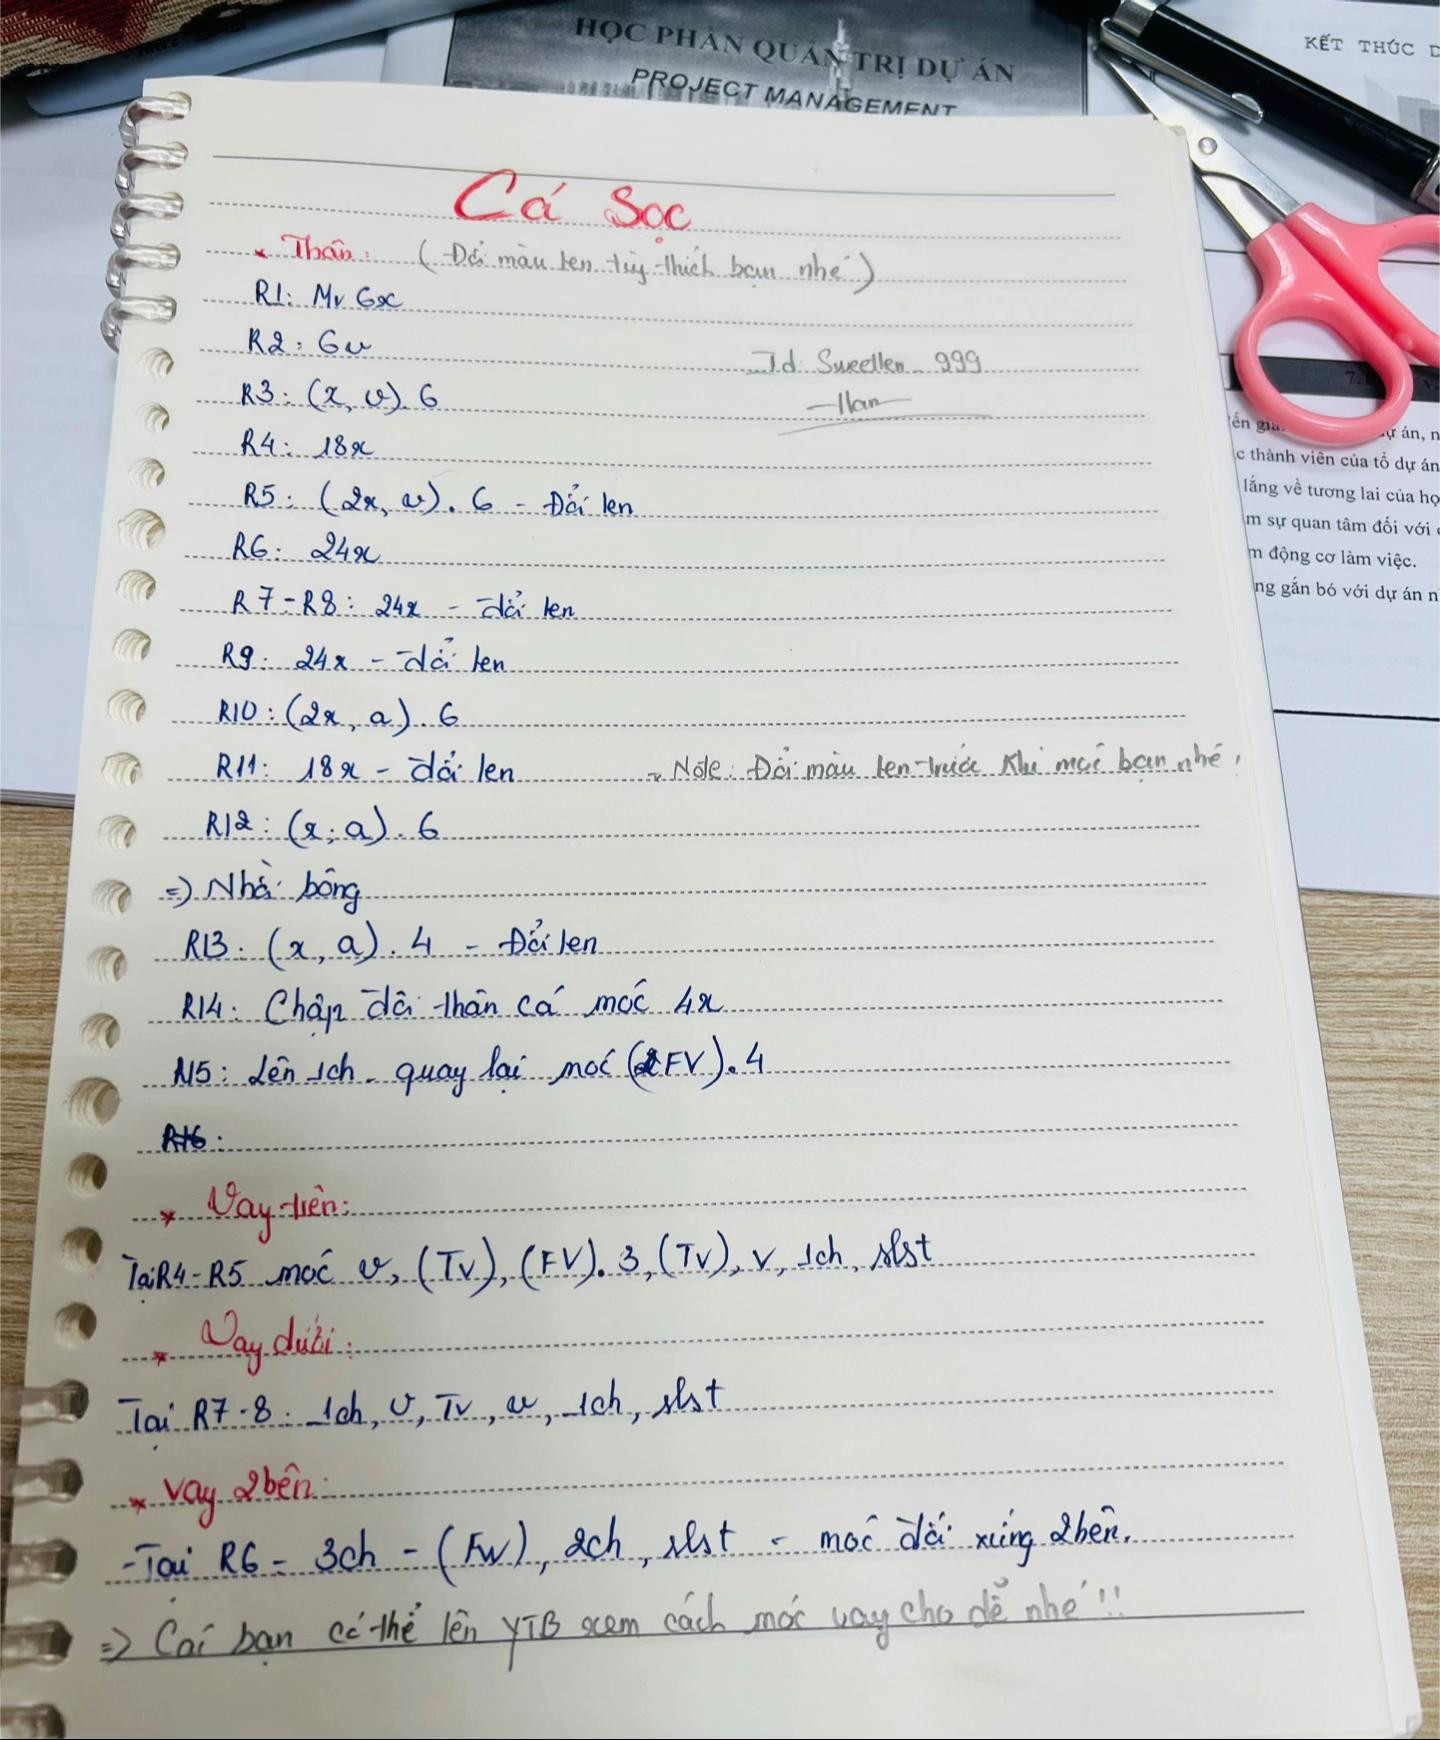 HỌC PHẦN QUẢN TRỊ DỰ ÁN
PROJECT MANAGEMENT
KẾT THÚC D
Cá Sọc
* Thân: (Đổi màu len tùy thích bạn nhé)
R1: Mr 6x
R2: 6v
Id: Sweetlen_999
R3: (x, v). 6
R4: 18x
R5: (2x, v). 6 - Đổi len
R6: 24x
R7-R8: 24x - đổi len
R9: 24x - đổi len
R10: (2x, a). 6
R11: 18x - đổi len
Note: Đổi màu len trước khi móc bạn nhé!
R12: (x, a). 6
=> Nhồi bông
R13: (x, a). 4 - Đổi len
R14: Chập đôi thân cá móc 4x
R15: Lên 1ch - quay lại móc (FV). 4
R16:
* Vay trên:
Tại R4-R5 móc v, (Tv), (FV). 3, (Tv), v, 1ch, slst
* Vay dưới:
Tại R7-8: 1ch, v, Tv, v, 1ch, slst
* Vay 2 bên:
- Tại R6 - 3ch - (FW), 2ch, slst - móc đối xứng 2 bên.
=> Các bạn có thể lên YTB xem cách móc vay cho dễ nhé!!
ự án, n
c thành viên của tổ dự án
lắng về tương lai của họ
m sự quan tâm đối với
m động cơ làm việc.
ng gắn bó với dự án n